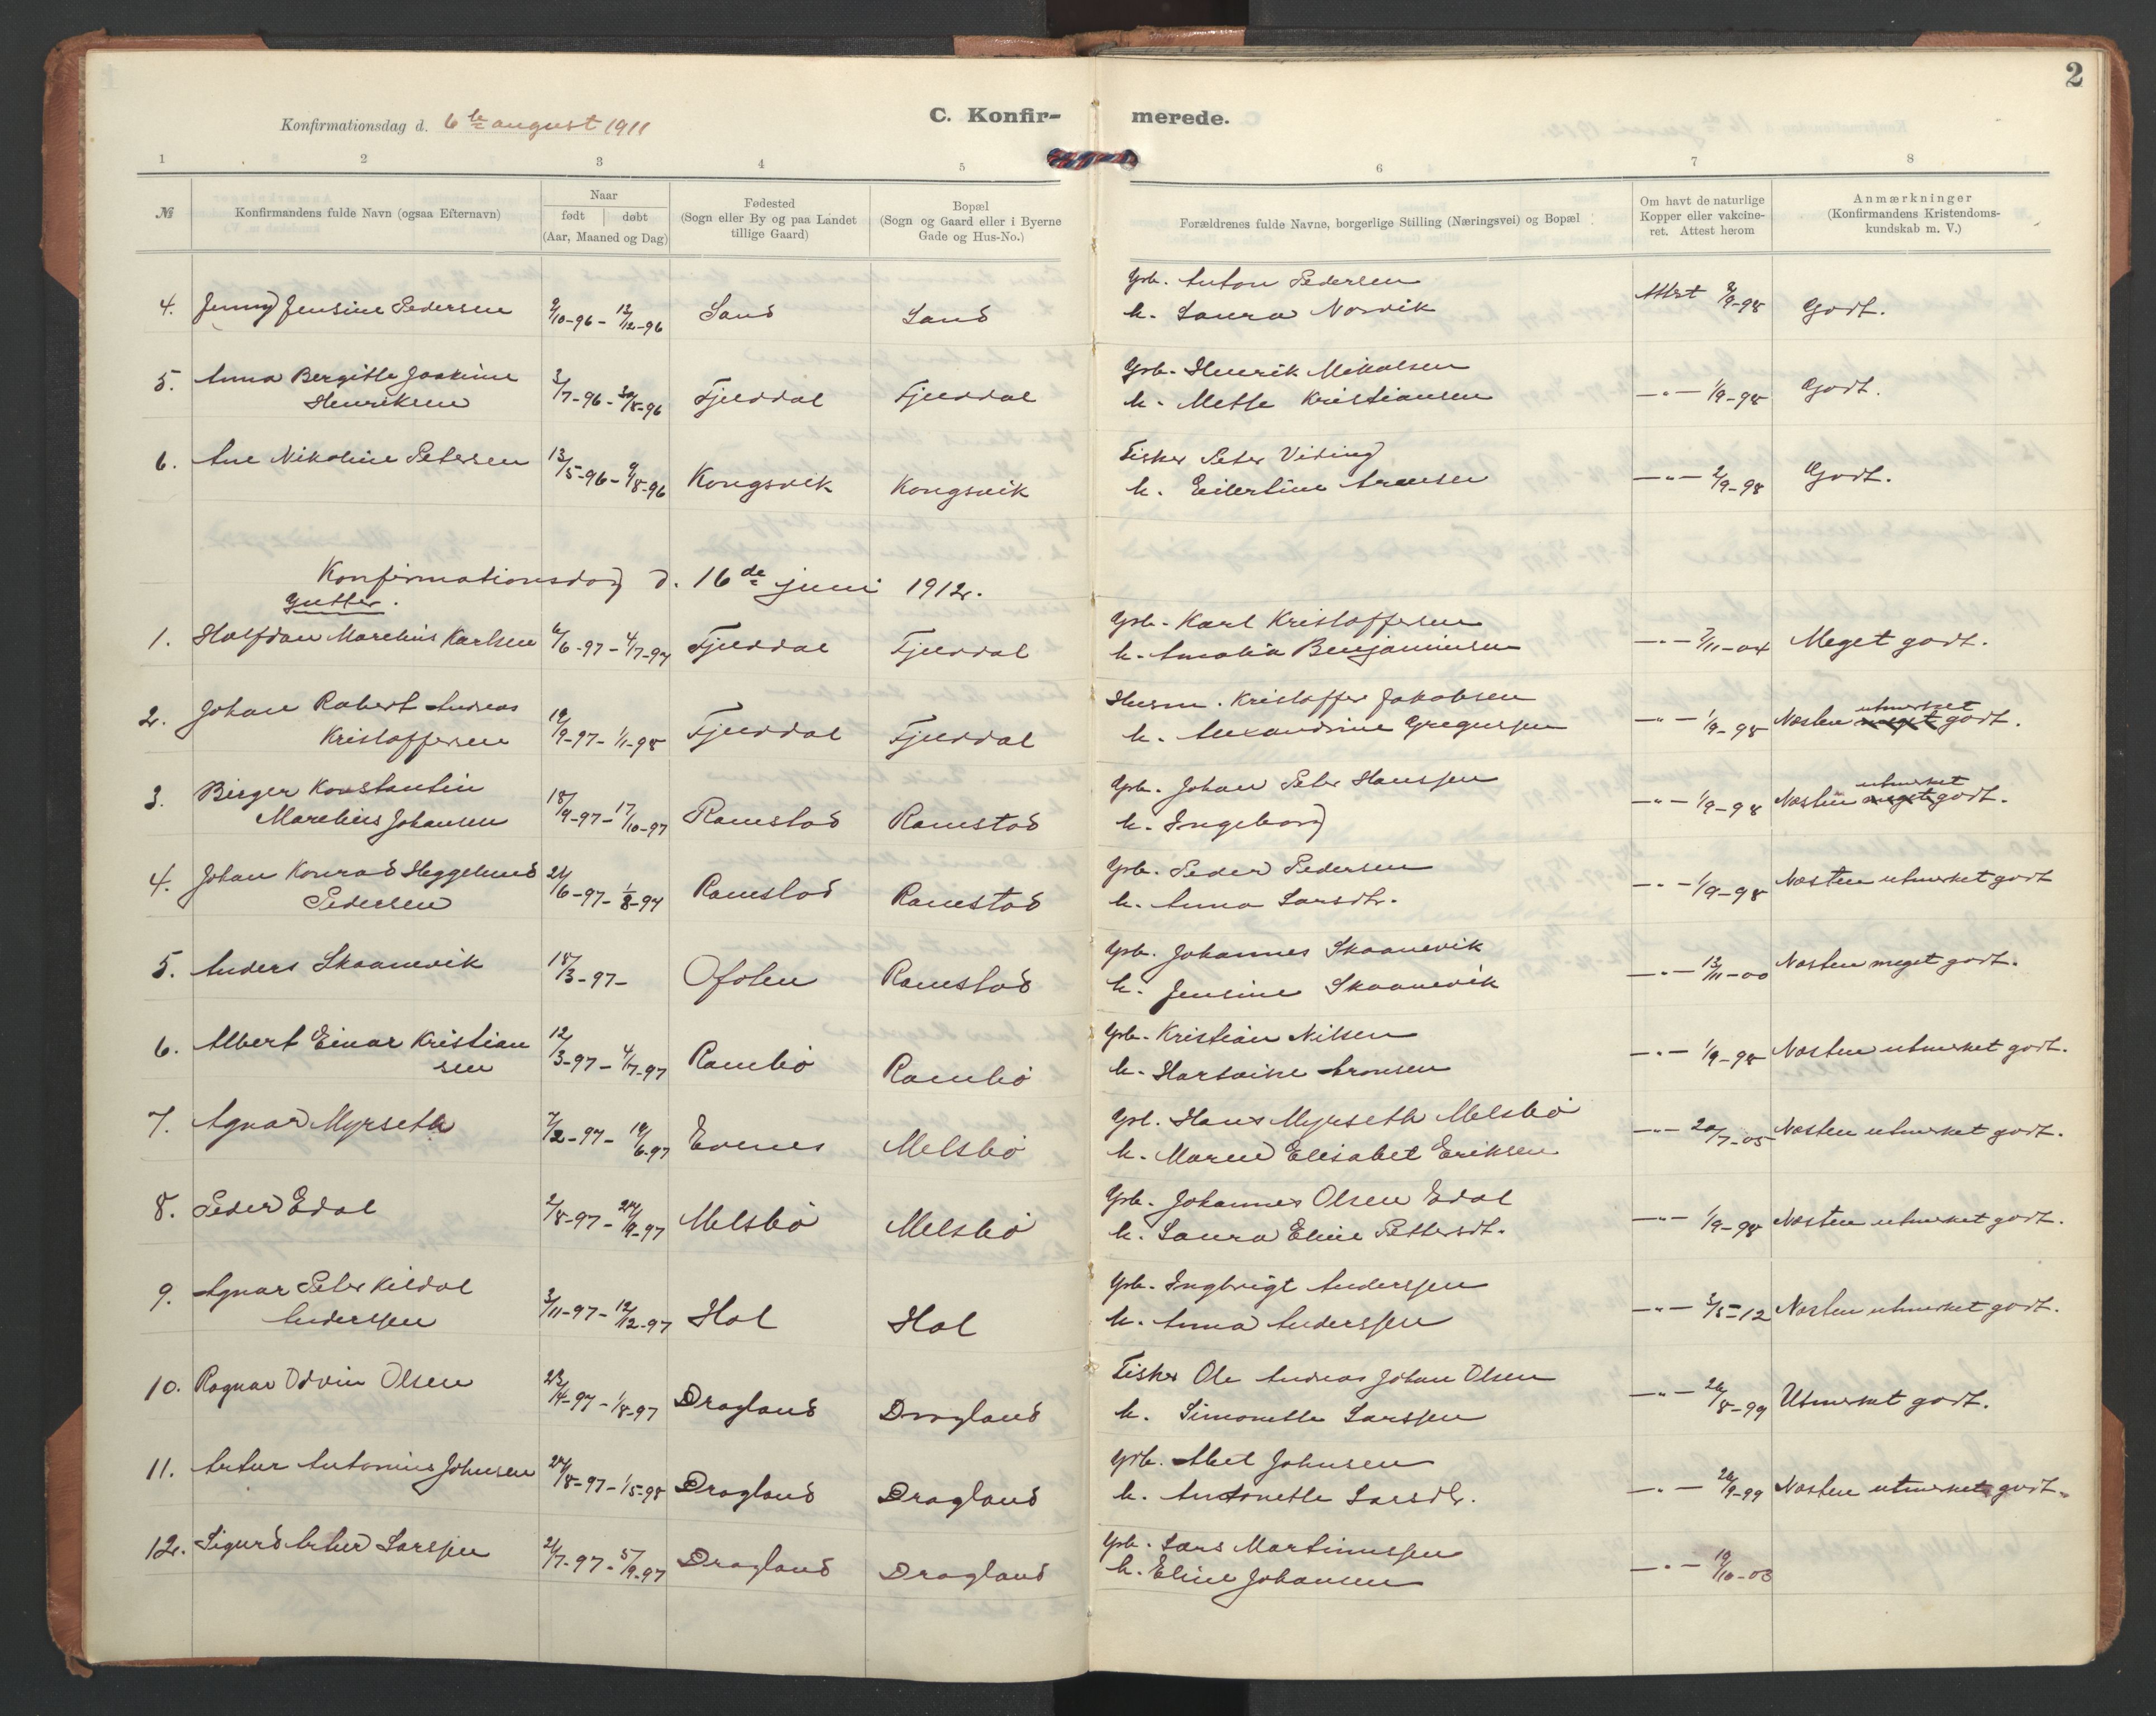 2
Konfirmationsdag d. 6te august 1911
C. Konfir-
merede.
1 2 3 4 5 6 7 8
№
Konfirmandens fulde Navn (ogsaa Efternavn)
Naar
født døbt
(Aar, Maaned og Dag)
Fødested
(Sogn eller By og paa Landet
tillige Gaard)
Bopæl
(Sogn og Gaard eller i Byerne
Gade og Hus-No.)
Forældrenes fulde Navne, borgerlige Stilling (Næringsvei) og Bopæl
Om havt de naturlige
Kopper eller vakcine-
ret. Attest herom
Anmærkninger
(Konfirmandens Kristendoms-
kundskab m. V.)
Grb. Anton Pedersen
4. Jenny Jensine Pedersen 9/10-96 - 13/12-96 Sand Sand h. Laura Norvik Attest 2/9-98 Godt.
5. Anna Bergitte Joakime Grb. Henrik Mikalsen
Henriksen 3/7-96 - 30/8-96 Fjelddal Fjelddal h. Mette Kristiansen -"- 1/9-98 Godt.
6. Ane Nikoline Petersen 13/5-96 - 9/8-96 Kongsvik Kongsvik Fisker Peter Viding
h. Eilertine Aronsen -"- 2/9-98 Godt.
Konfirmationsdag d. 16de juni 1912.
Gutter.
Grb. Karl Kristoffersen
1. Halfdan Marelius Karlsen 6/6-97 - 4/7-97 Fjelddal Fjelddal h. Amalia Benjaminsen -"- 7/11-04 Meget godt.
2. Johan Robert Andreas Husm. Kristoffer Jakobsen utmerket
Kristoffersen 19/9-97 - 1/1-98 Fjelddal Fjelddal h. Alexandrine Gregersen -"- 1/9-98 Næsten meget godt.
3. Birger Konstantin Grb. Johan Peter Hanssen utmerket
Marelius Johansen 18/9-97 - 17/10-97 Ramstad Ramstad h. Ingeborg -"- 1/9-98 Næsten meget godt.
4. Johan Konrad Heggelund Grb. Peder Pedersen
Pedersen 24/6-97 - 1/8-97 Ramstad Ramstad h. Anna Larsdtr. -"- 1/9-98 Næsten utmerket godt
5. Anders Skaanevik 18/3-97- Ofoten Ramstad Grb. Johannes Skaanevik
h. Jensine Skaanevik -"- 13/11-00 Næsten meget godt.
6. Albert Einar Kristian Grb. Kristian Nilsen
sen 12/3-97 - 4/7-97 Rambø Rambø h. Hartvike Aronsen -"- 1/9-98 Næsten utmerket godt.
7. Agnar Myrseth 7/2-97 - 19/6-97 Evenes Melsbø Grb. Hans Myrseth Melsbø
h. Maren Elisabet Eriksen -"- 20/7-05 Næsten utmerket godt.
8. Peder Edal 2/8-97 - 24/9-97 Melsbø Melsbø Grb. Johannes Olsen Edal
h. Laura Eline Pettersdt. -"- 1/9-98 Næsten utmerket godt.
9. Agnar Peter Kildal Grb. Ingbrigt Anderssen
Anderssen 3/11-97 - 12/12-97 Hol Hol h. Anna Anderssen -"- 3/5-12 Næsten utmerket godt.
10. Ragnar Odvin Olsen 23/4-97 - 1/8-97 Dragland Dragland Fisker Ole Andreas Johan Olsen
h. Simonette Larssen -"- 26/8-99 Utmerket godt.
11. Artur Antonius Johnsen 24/8-97 - 1/5-98 Dragland Dragland Grb. Abel Johnsen
h. Antonette Larsdtr. -"- 26/9-99 Næsten utmerket godt.
12. Sigurd Artur Larssen 21/7-97 - 5/9-97 Dragland Dragland Grb. Lars Martinussen
h. Eline Johansen -"- 19/10-03